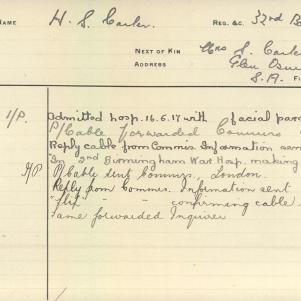 NAME H. S. Carler. REG. &C. 32nd B
NEXT OF KIN Mrs S. Carle
ADDRESS Glen Osm
S.A. Fi
1/P. Admitted hosp. 16.6.17 with facial para
P/Cable forwarded Commrs
Reply cable from Commis. Information sen
In 2nd Birmingham War Hosp. making
P/Cable sent Commrs, London.
Reply from Commis. Information sent
" " confirming cable
Same forwarded Inquirer